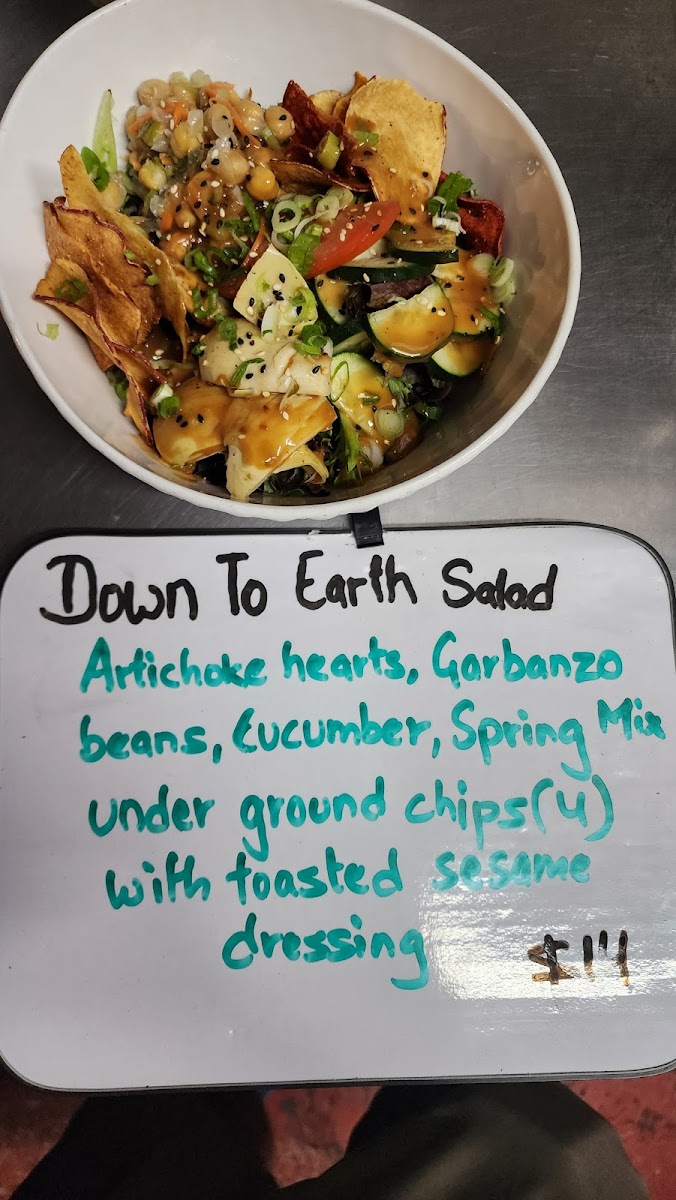 Down To Earth Salad
Artichoke hearts, Garbanzo
beans, Cucumber, Spring Mix
under ground chips(4)
with toasted sesame
dressing
$14